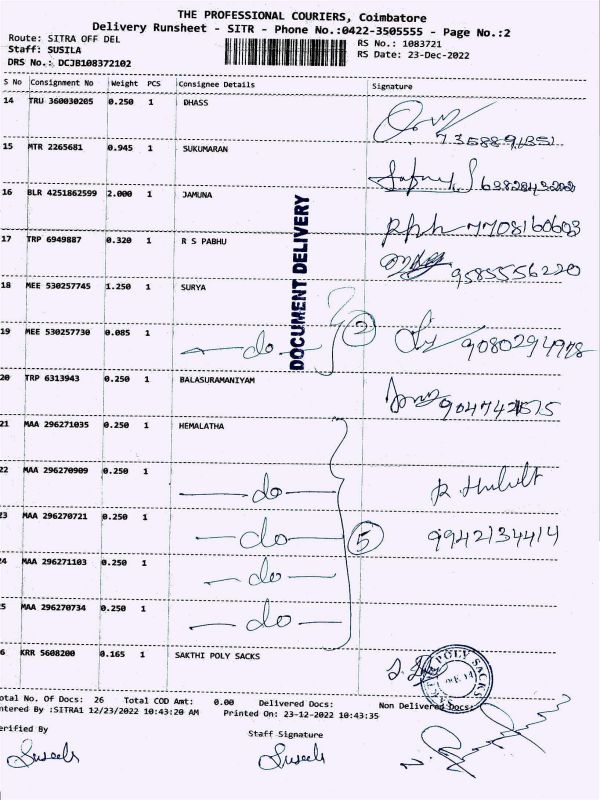 THE PROFESSIONAL COURIERS, Coimbatore
Delivery Runsheet - SITR - Phone No.:0422-3505555 - Page No.:2
Route: SITRA OFF DEL
RS No.: 1083721
Staff: SUSILA
RS Date: 23-Dec-2022
DRS No.: DCJB108372102
S No Consignment No Weight PCS Consignee Details Signature
14 TRU 360030205 0.250 1 DHASS
15 MTR 2265681 0.945 1 SUKUMARAN
16 BLR 4251862599 2.000 1 JAMUNA
7708160603
17 TRP 6949887 0.320 1 R S PABHU
9585556220
18 MEE 530257745 1.250 1 SURYA
DOCUMENT DELIVERY
19 MEE 530257730 0.085 1 do 2
20 TRP 6313943 0.250 1 BALASURAMANIYAM
21 MAA 296271035 0.250 1 HEMALATHA
22 MAA 296270909 0.250 1 do
23 MAA 296270721 0.250 1 do 5 9942134414
24 MAA 296271103 0.250 1 do
25 MAA 296270734 0.250 1 do
6 KRR 5608200 0.165 1 SAKTHI POLY SACKS
POLY SACKS
otal No. Of Docs: 26 Total COD Amt: 0.00 Delivered Docs: Non Delivered Docs:
ntered By :SITRA1 12/23/2022 10:43:20 AM Printed On: 23-12-2022 10:43:35
erified By
Staff Signature
Suseela
Suseela